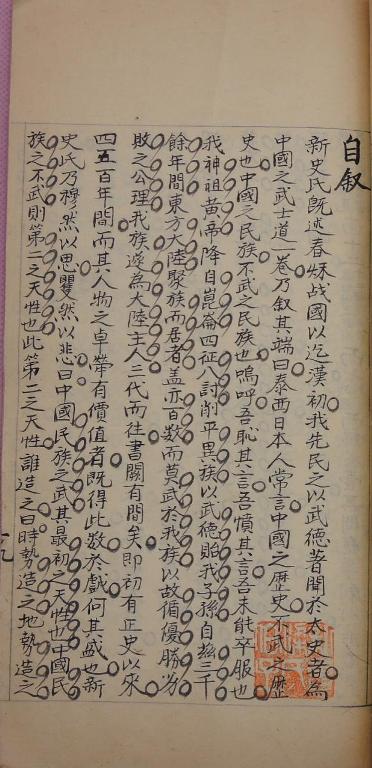 自叙
新史氏既述春秋战國以迄漢初我先民之以武德著聞於太史者為
中國之武士道一卷乃叙其端曰泰西日本人常言中國之歷史不武之歷
史也中國之民族不武之民族也嗚呼吾恥其言吾憤其言吾未能卒服也
我神祖黃帝降自崑崙四征八討削平異族以武德貽我子孫自茲三千
餘年間東方大陸聚族而居者盖亦百数而莫武於我族以故循優勝劣
敗之公理我族遂為大陸主人三代而往書闕有間矣即初有正史以來
四五百年間而其人物之卓犖有價值者既得此数於戲何其盛也新
史氏乃穆然以思矍然以悲曰中國民族之武其最初之天性也中國民
族之不武則第二之天性也此第二之天性誰造之曰時勢造之地勢造之